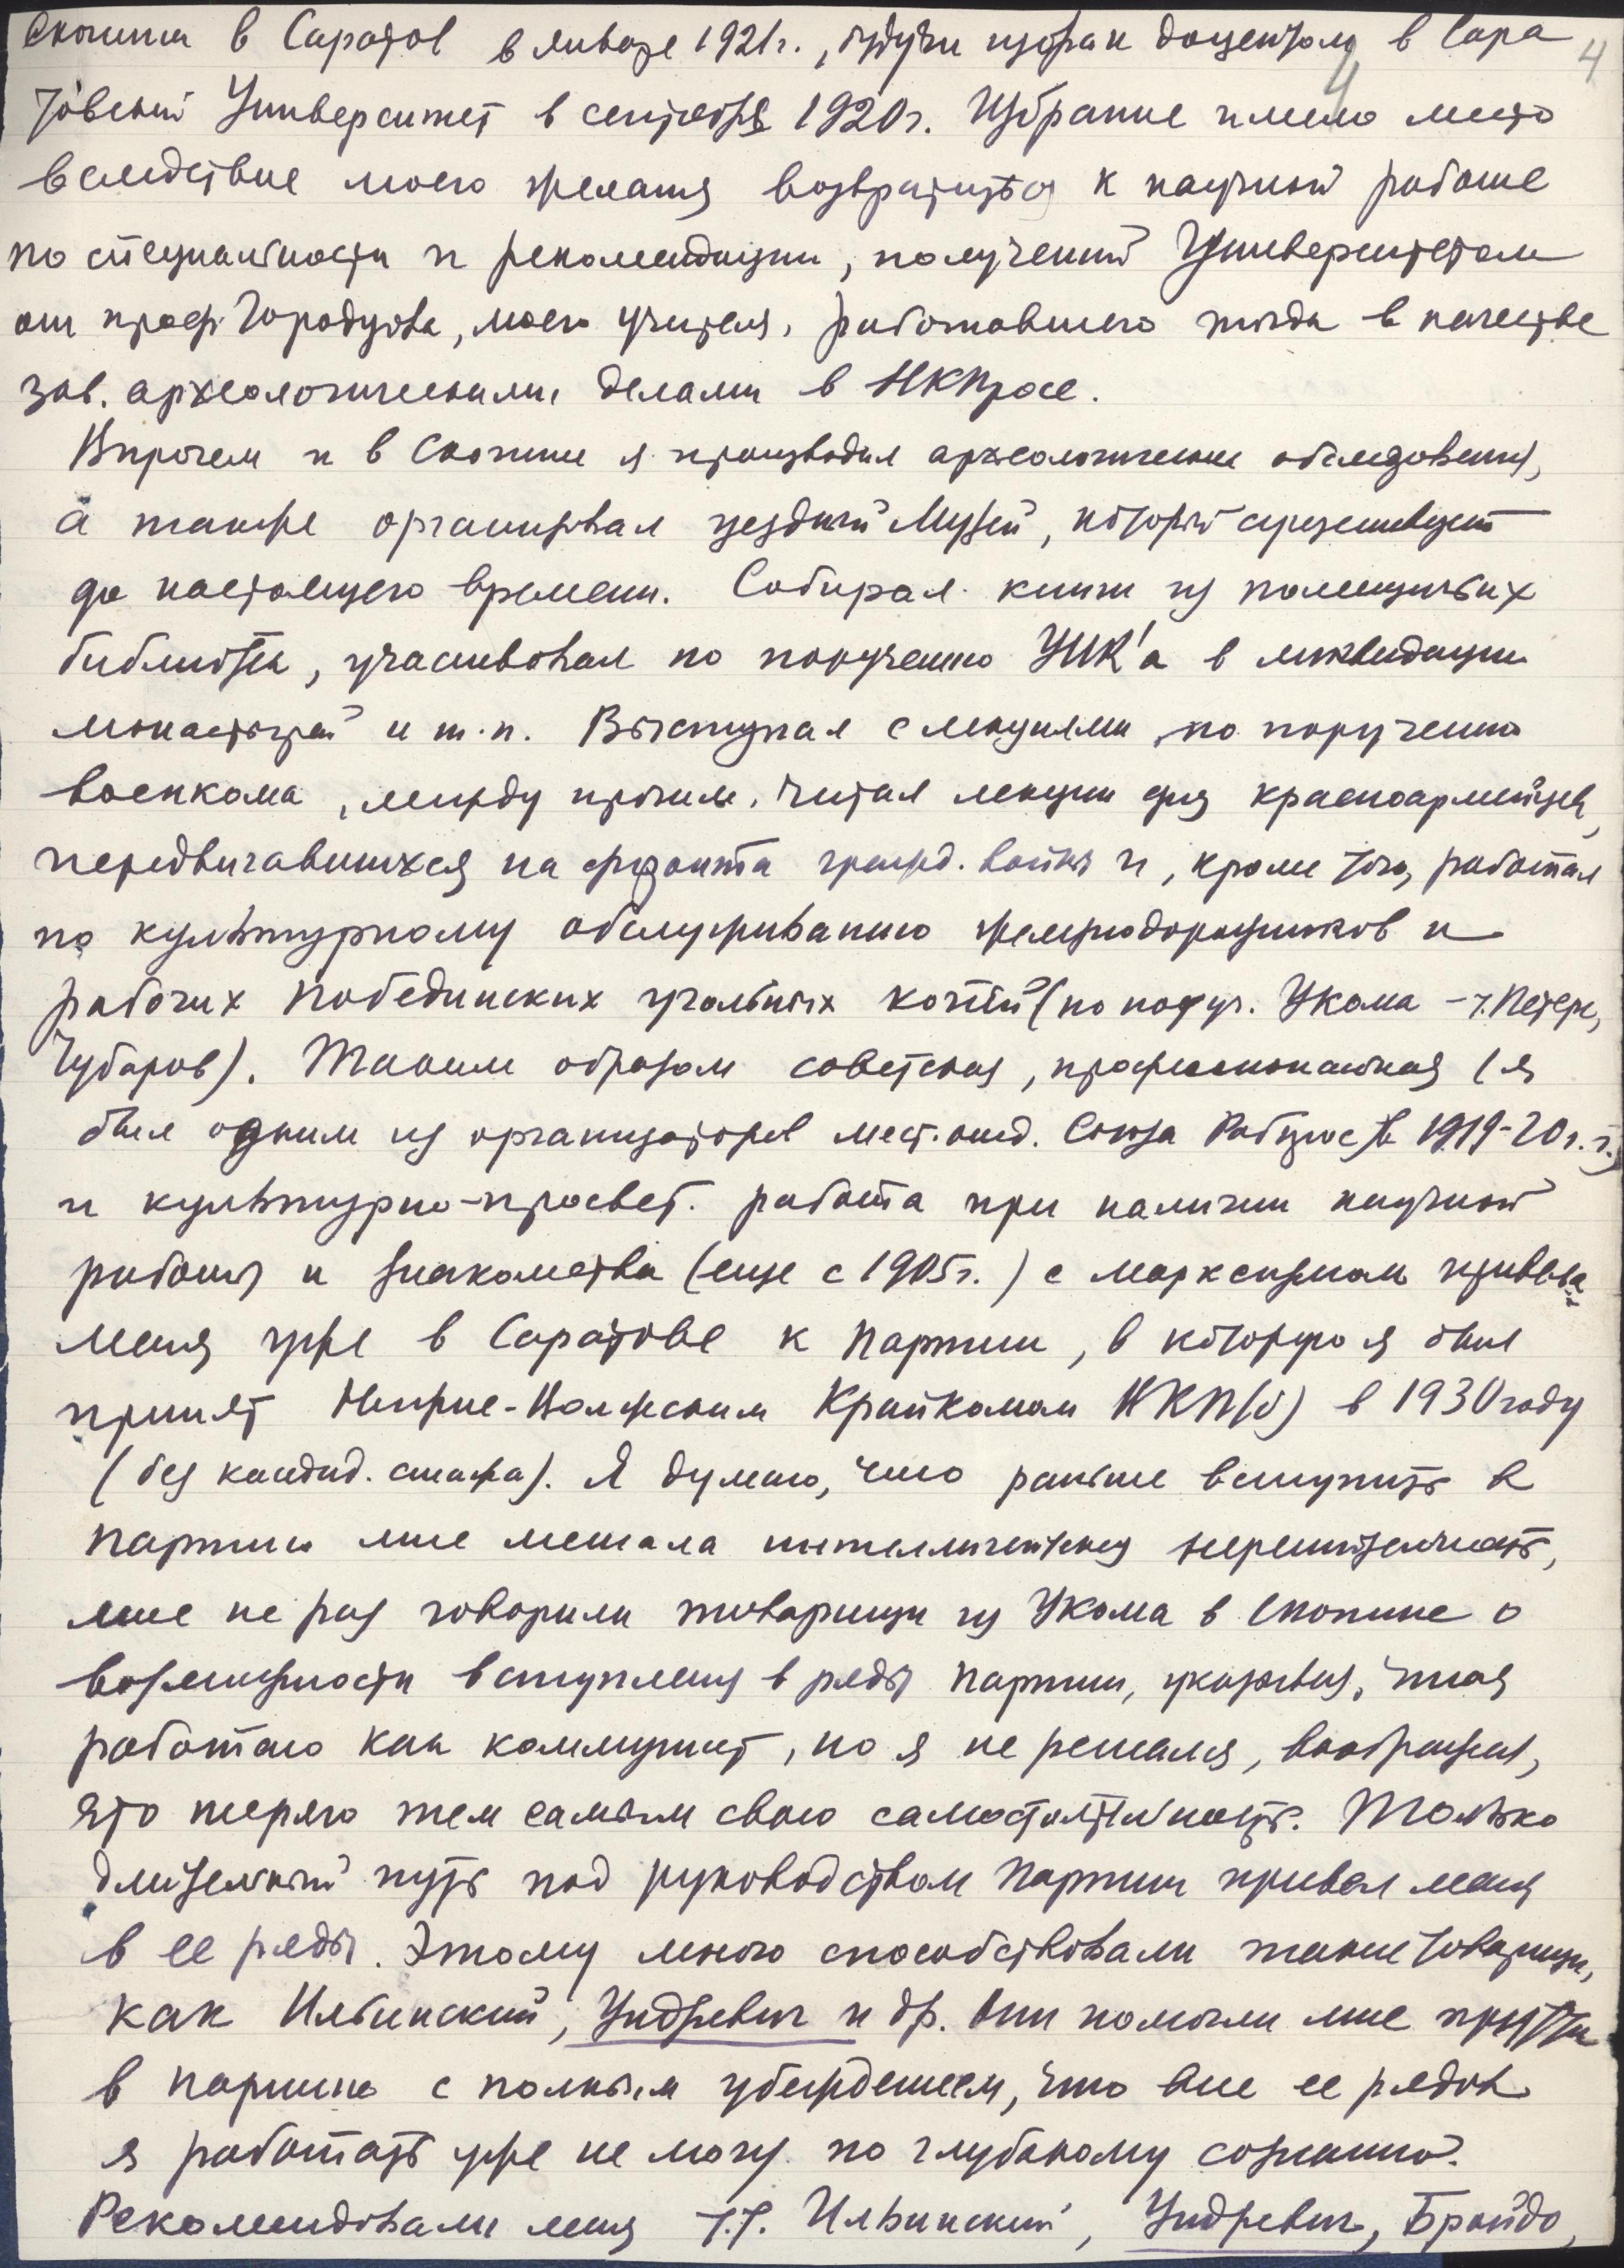 Скопина в Саратов в январе 1921г., будучи избран доцентом в Сара 4
товский Университет в сентябре 1920г. Избрание имело место
вследствие моего желания возвратиться к научной работе
по специальности и рекомендации, полученной Университетом
от проф. Городцова, моего учителя, работавшего тогда в качестве
зав. археологическими делами в НКПросе.
Впрочем и в Скопине я производил археологические обследования,
а также организовал уездный Музей, который существует
до настоящего времени. Собирал книги из помещичьих
библиотек, участвовал по поручению УИК'а в ликвидации
монастырей и т.п. Выступал с лекциями по поручению
военкома, между прочим, читал лекции для красноармейцев,
передвигавшихся на фронта гражд. войны и, кроме того, работал
по культурному обслуживанию железнодорожников и
рабочих Побединских угольных копей (по поруч. Укома – т. Петерс,
Чубаров). Таким образом советская, профессиональная (я
был одним из организаторов мест. отд. Союза Рабпрос в 1919-20г.г.)
и культурно-просвет. работа при наличии научной
работы и знакомства (еще с 1905г.) с марксизмом привела
меня уже в Саратове к партии, в которую я был
принят Нижне-Волжским Крайкомом ВКП(б) в 1930 году
(без кандид. стажа). Я думаю, что раньше вступить в
партию мне мешала интеллигентская нерешительность,
мне не раз говорили товарищи из Укома в Скопине о
возможности вступления в ряды партии, указывая, что я
работаю как коммунист, но я не решался, воображая,
что теряю тем самым свою самостоятельность. Только
длительный путь под руководством партии привел меня
в ее ряды. Этому много способствовали такие товарищи,
как Ильинский, Ундревич и др. Они помогли мне притти
в партию с полным убеждением, что вне ее рядов
я работать уже не могу по глубокому сознанию.
Рекомендовали меня т.т. Ильинский, Ундревич, Бройдо,